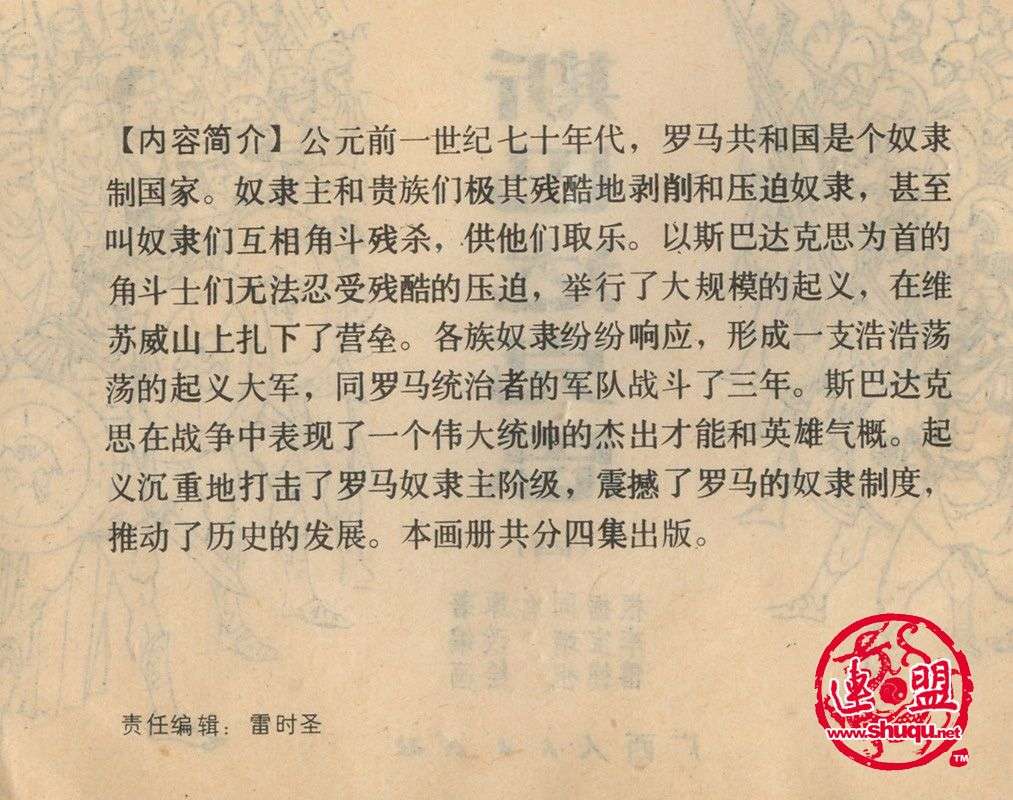 【内容简介】公元前一世纪七十年代，罗马共和国是个奴隶
制国家。奴隶主和贵族们极其残酷地剥削和压迫奴隶，甚至
叫奴隶们互相角斗残杀，供他们取乐。以斯巴达克思为首的
角斗士们无法忍受残酷的压迫，举行了大规模的起义，在维
苏威山上扎下了营垒。各族奴隶纷纷响应，形成一支浩浩荡
荡的起义大军，同罗马统治者的军队战斗了三年。斯巴达克
思在战争中表现了一个伟大统帅的杰出才能和英雄气概。起
义沉重地打击了罗马奴隶主阶级，震撼了罗马的奴隶制度，
推动了历史的发展。本画册共分四集出版。
责任编辑：雷时圣
連盟
www.shuqu.net
TM